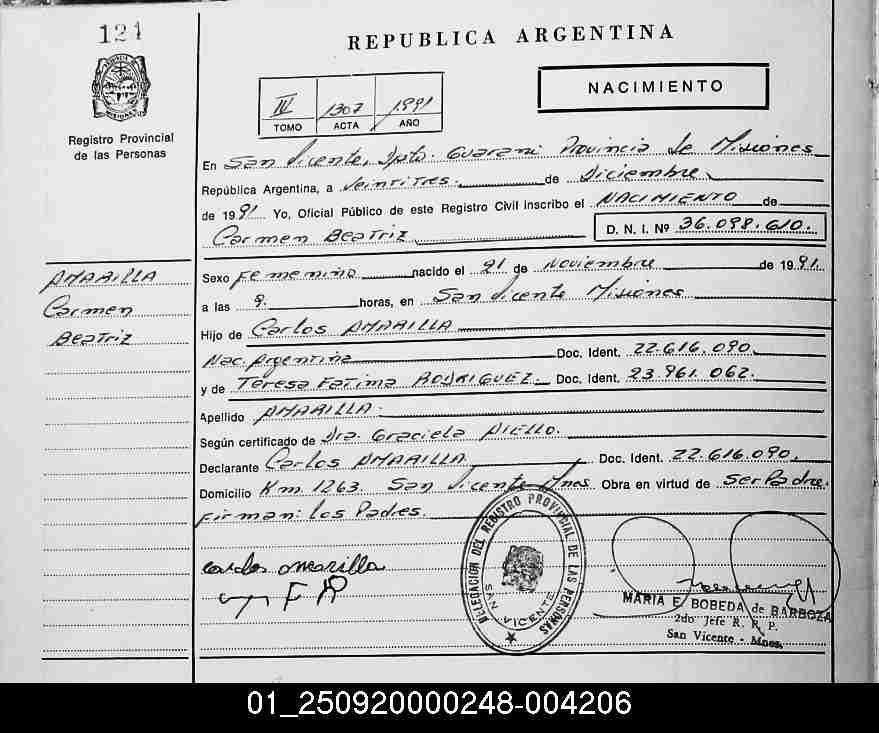 121
REPUBLICA ARGENTINA
IV 1307 1991
TOMO ACTA AÑO
NACIMIENTO
Registro Provincial
de las Personas
En San Vicente, Dpto. Guarani Provincia de Misiones
República Argentina, a Veintitres. de Diciembre
de 1991 Yo, Oficial Público de este Registro Civil inscribo el NACIMIENTO de
Carmen Beatriz D. N. I. Nº 36.098.610.
AMARILLA
Carmen
Beatriz
Sexo Femenino nacido el 21 de Noviembre de 1991.
a las 9. horas, en San Vicente Misiones
Hijo de Carlos AMARILLA
Nac. Argentina Doc. Ident. 22.616.090.
y de Teresa Fatima RODRIGUEZ. Doc. Ident. 23.961.062.
Apellido AMARILLA.
Según certificado de Dra. Graciela AIELLO.
Declarante Carlos AMARILLA Doc. Ident. 22.616.090.
Domicilio Km 1263. San Vicente Mnes Obra en virtud de Ser Padre.
Firman: los Padres.
carlos amarilla
DELEGACION DEL REGISTRO PROVINCIAL DE LAS PERSONAS
SAN VICENTE
MARIA E. BOBEDA de BARBOZA
2do Jefe R. R. P.
San Vicente - Mnes.
01_250920000248-004206